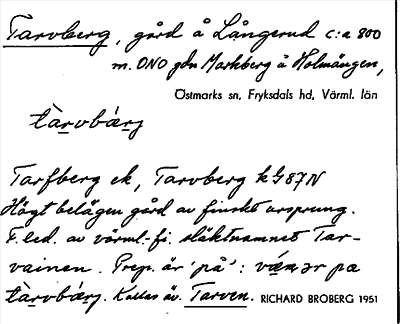 Tarvberg, gård å Långerud c:a 800
m. ONO gdn Markberg å Holmängen,
Östmarks sn, Fryksdals hd, Värml. län
tàrvbárj
Tarfberg ek, Tarvberg kG87N
Högt belägen gård av finskt ursprung.
F.led. av värml.-fi. släktnamnet Tar-
vainen. Prep. är 'på': vǽnər pa
tàrvbárj. Kallas äv. Tarven. RICHARD BROBERG 1951